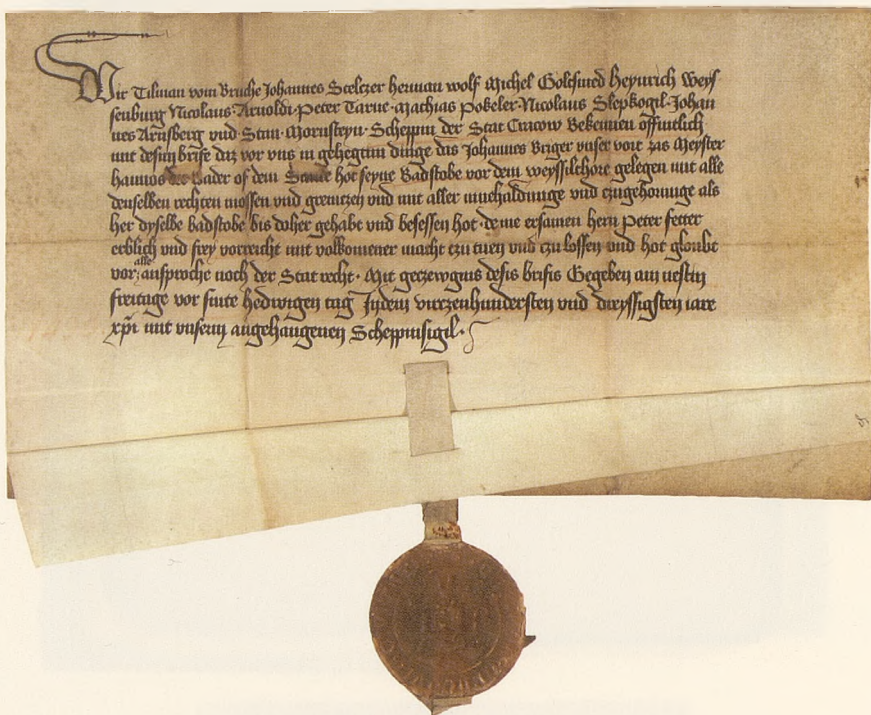 Wir Tilman vom Bruche Johannes Stelczer herman wolf Michel Goltsmed Heynrich Weys
senburg Nicolaus Arnoldi · Peter Tarne · Mathias Pokeler · Nicolaus Slepkogil · Johan
nes Arnsberg vnd Stan · Mornsteyn · Scheppin der Stat Cracow Bekennen offintlich
mit desim brife daz vor vns in gehegtim dinge das Johannes Briger vnser voit zas Meyster
hannos der Bader of dem hot seyne Badstobe vor dem weyssilthore gelegen mit alle
denselben rechten mossen vnd greniczen vnd mit aller nuczhaldunge vnd czugehorunge als
her dyselbe badstobe bis doher gehabt vnd besessen hot · deme ersamen hern Peter fetter
erblich vnd frey vorreicht mit volkomener macht czu tuen vnd czu lossen vnd hot globt
vor alle ansproche noch der Stat recht · Mit geczewgnis desis brifis Gegeben am nestin
freitage vor sinte hedwigen tag Indem virczenhundersten vnd dreyssigsten iare
xpi mit vnserm angehangenen Scheppinsigil ·